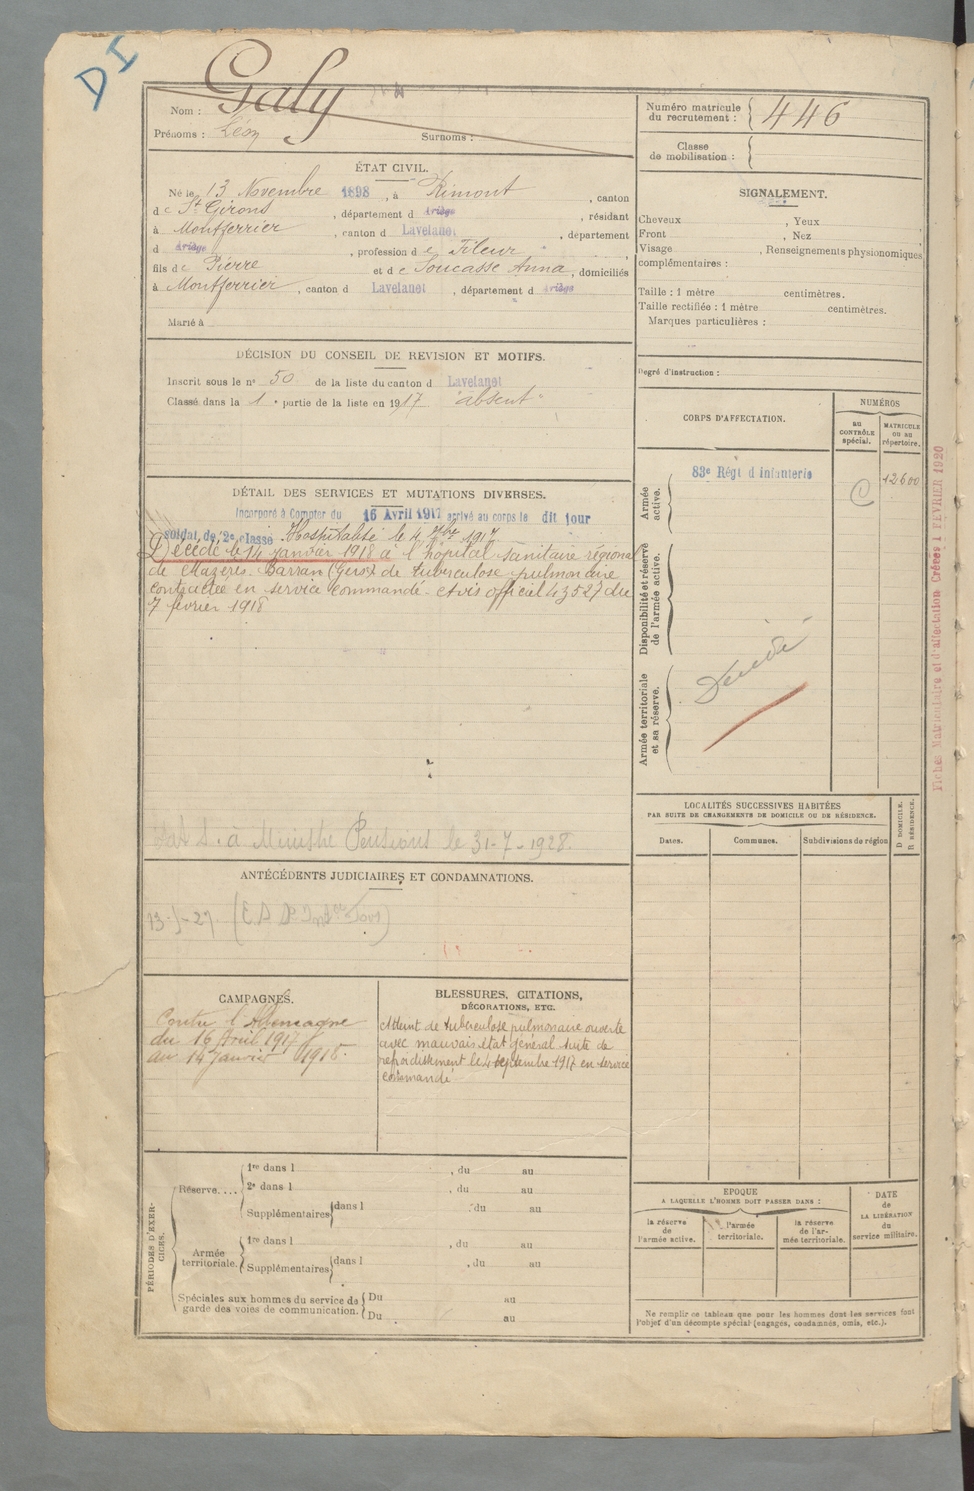 DI
Nom : Galy
Prénoms : Léon Surnoms :
Numéro matricule du recrutement : 446
Classe de mobilisation :
ÉTAT CIVIL.
Né le 13 Novembre 1898, à Rimont, canton
de St Girons, département d Ariège, résidant
à Montferrier, canton d Lavelanet, département
d Ariège, profession de Fileur
fils de Pierre et de Soucasse Anna, domiciliés
à Montferrier, canton d Lavelanet, département d Ariège
Marié à
SIGNALEMENT.
Cheveux , Yeux ,
Front , Nez
Visage , Renseignements physionomiques
complémentaires :
Taille : 1 mètre centimètres.
Taille rectifiée : 1 mètre centimètres.
Marques particulières :
Degré d'instruction :
DÉCISION DU CONSEIL DE REVISION ET MOTIFS.
Inscrit sous le n° 50 de la liste du canton d Lavelanet
Classé dans la 1e partie de la liste en 1917 "absent"
CORPS D'AFFECTATION.
NUMÉROS
au CONTRÔLE spécial.
MATRICULE ou au répertoire.
Armée active.
83e Régt d'infanterie
C
12600
Disponibilité et réserve de l'armée active.
Armée territoriale et sa réserve.
Décédé
Fiches Matriculaire et d'affectation Créées 1 FEVRIER 1920
DÉTAIL DES SERVICES ET MUTATIONS DIVERSES.
Incorporé à Compter du 16 Avril 1917 arrivé au corps le dit jour
soldat de 2e classe Hospitalisé le 4 7bre 1917
Décédé le 14 janvier 1918 à l'hôpital sanitaire régional
de Mazères-Barran (Gers) de tuberculose pulmonaire
contractée en service commandé - Avis officiel 43527 du
7 février 1918
à Ministre Pensions le 31-7-1928.
LOCALITÉS SUCCESSIVES HABITÉES
PAR SUITE DE CHANGEMENTS DE DOMICILE OU DE RÉSIDENCE.
Dates.
Communes.
Subdivisions de région
D DOMICILE.
R RÉSIDENCE.
ANTÉCÉDENTS JUDICIAIRES ET CONDAMNATIONS.
CAMPAGNES.
Contre l'Allemagne
du 16 Avril 1917
au 14 Janvier 1918.
BLESSURES, CITATIONS,
DÉCORATIONS, ETC.
Atteint de tuberculose pulmonaire ouverte
avec mauvais état général suite de
refroidissement le 4 septembre 1917 en service
commandé
PÉRIODES D'EXERCICES.
Réserve....
1re dans l , du au
2e dans l , du au
Supplémentaires dans l du au
Armée territoriale.
1re dans l , du au
Supplémentaires dans l , du au
Spéciales aux hommes du service de garde des voies de communication.
Du au
Du au
EPOQUE
A LAQUELLE L'HOMME DOIT PASSER DANS :
la réserve de l'armée active.
l'armée territoriale.
la réserve de l'armée territoriale.
DATE
de
LA LIBÉRATION
du
service militaire.
Ne remplir ce tableau que pour les hommes dont les services font
l'objet d'un décompte spécial (engagés, condamnés, omis, etc.).